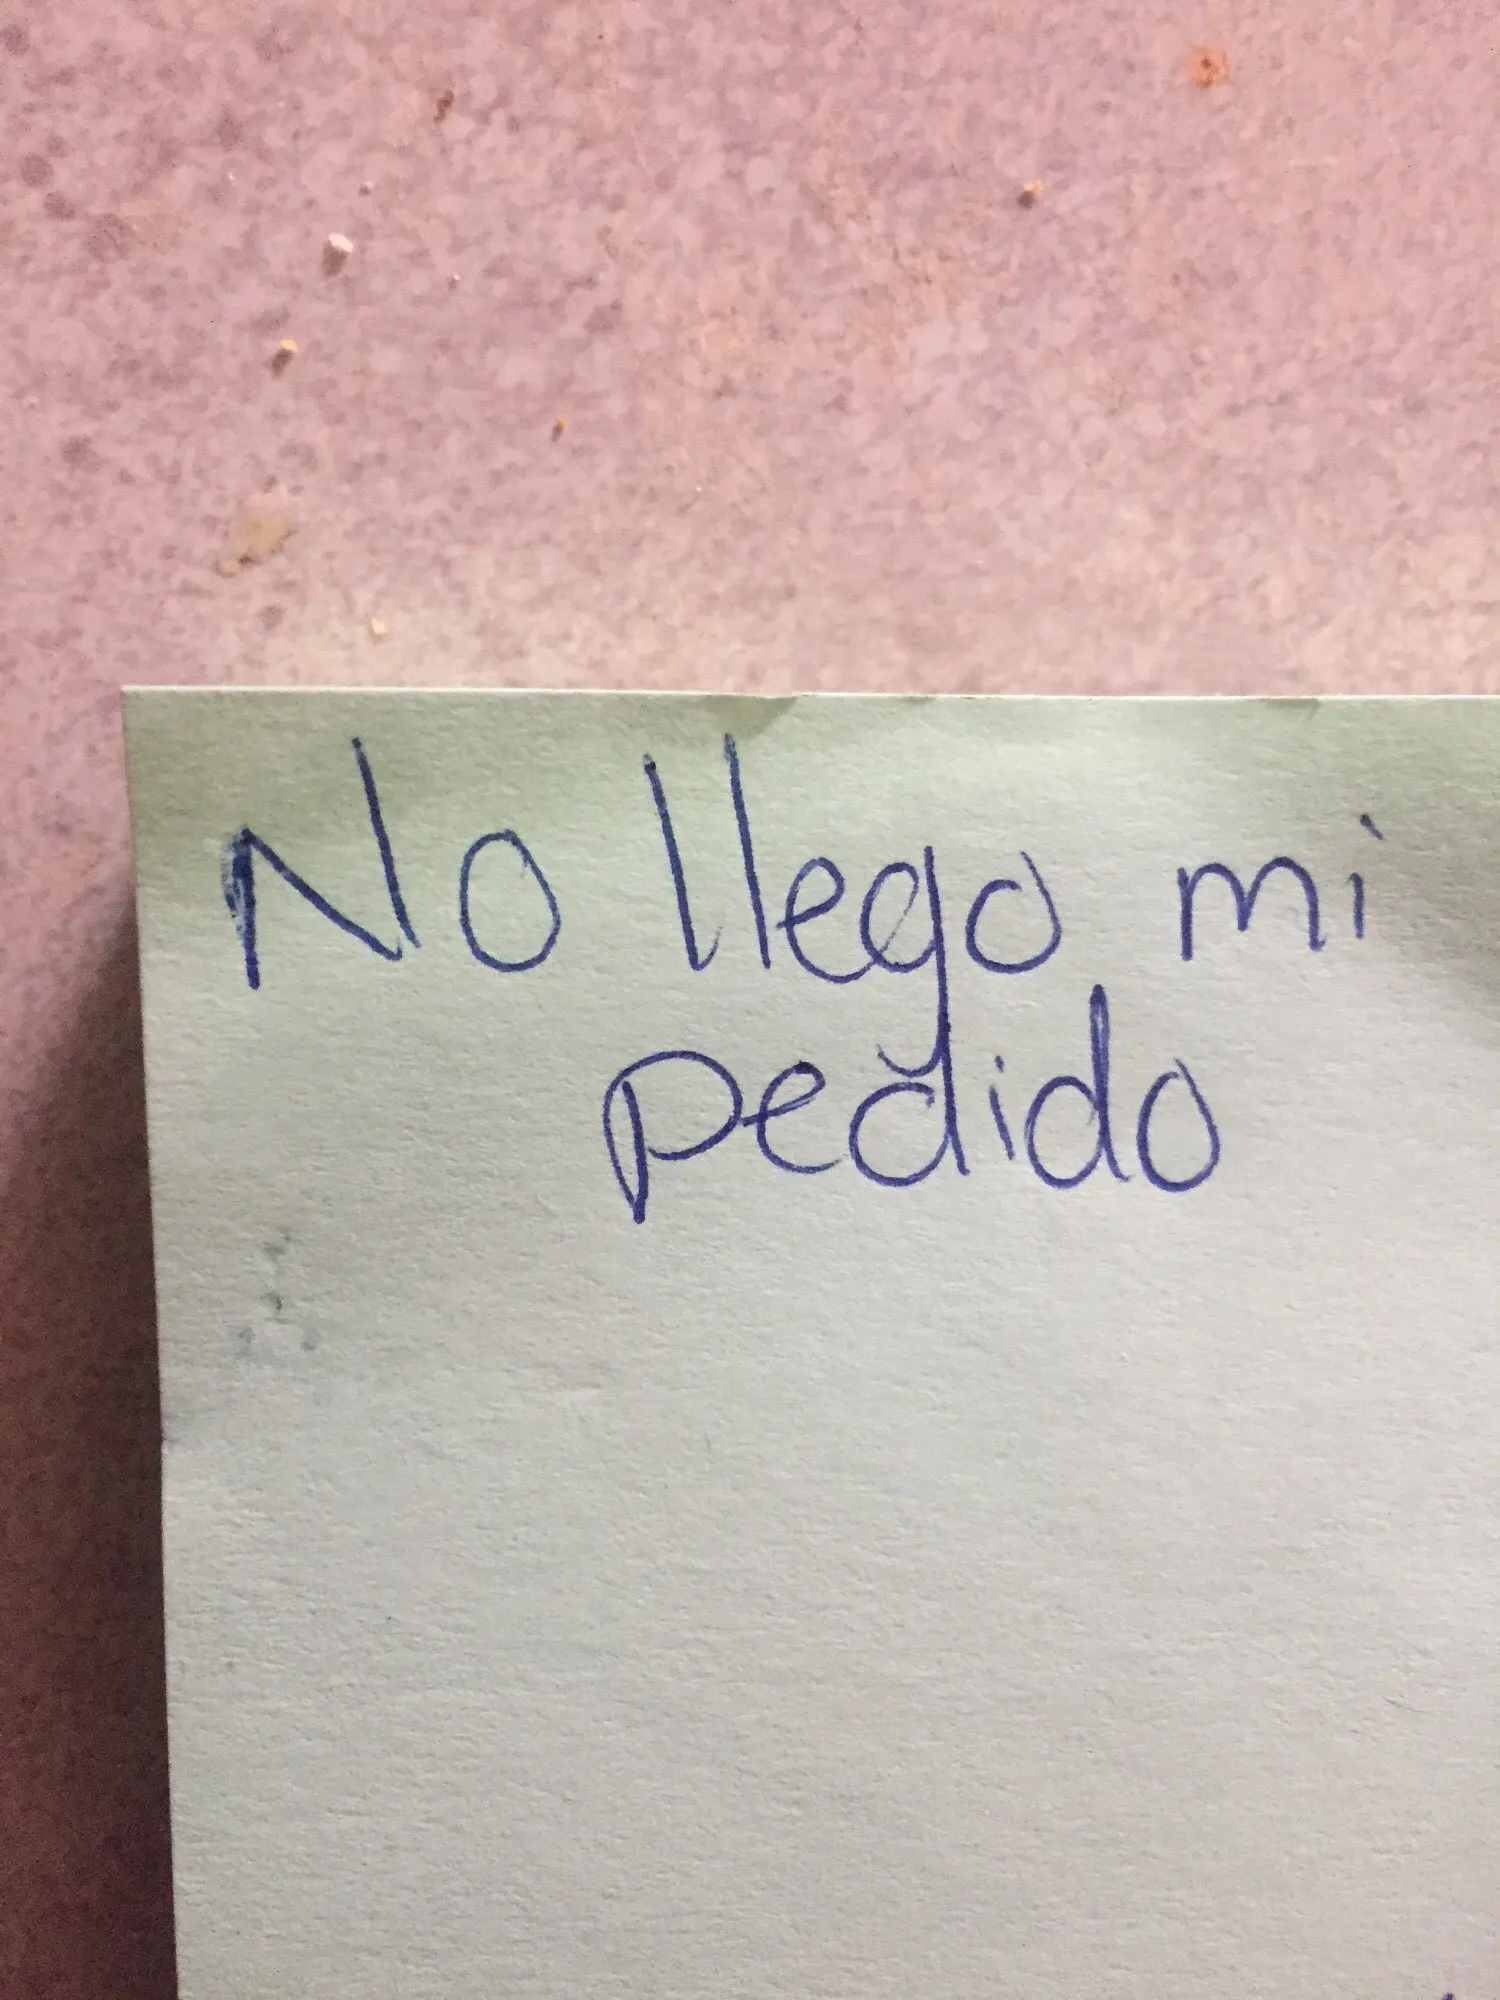 No llego mi
pedido